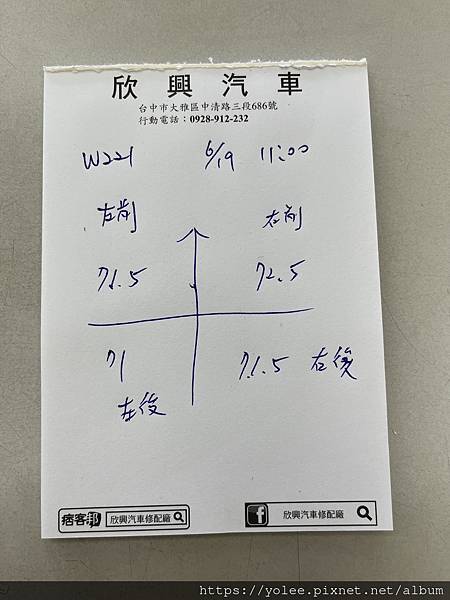 欣興汽車
台中市大雅區中清路三段686號
行動電話：0928-912-232
W221 6/19 11:00
左前 右前
71.5 72.5
71 71.5 右後
左後
痞客邦 欣興汽車修配廠
f 欣興汽車修配廠
https://yolee.pixnet.net/album